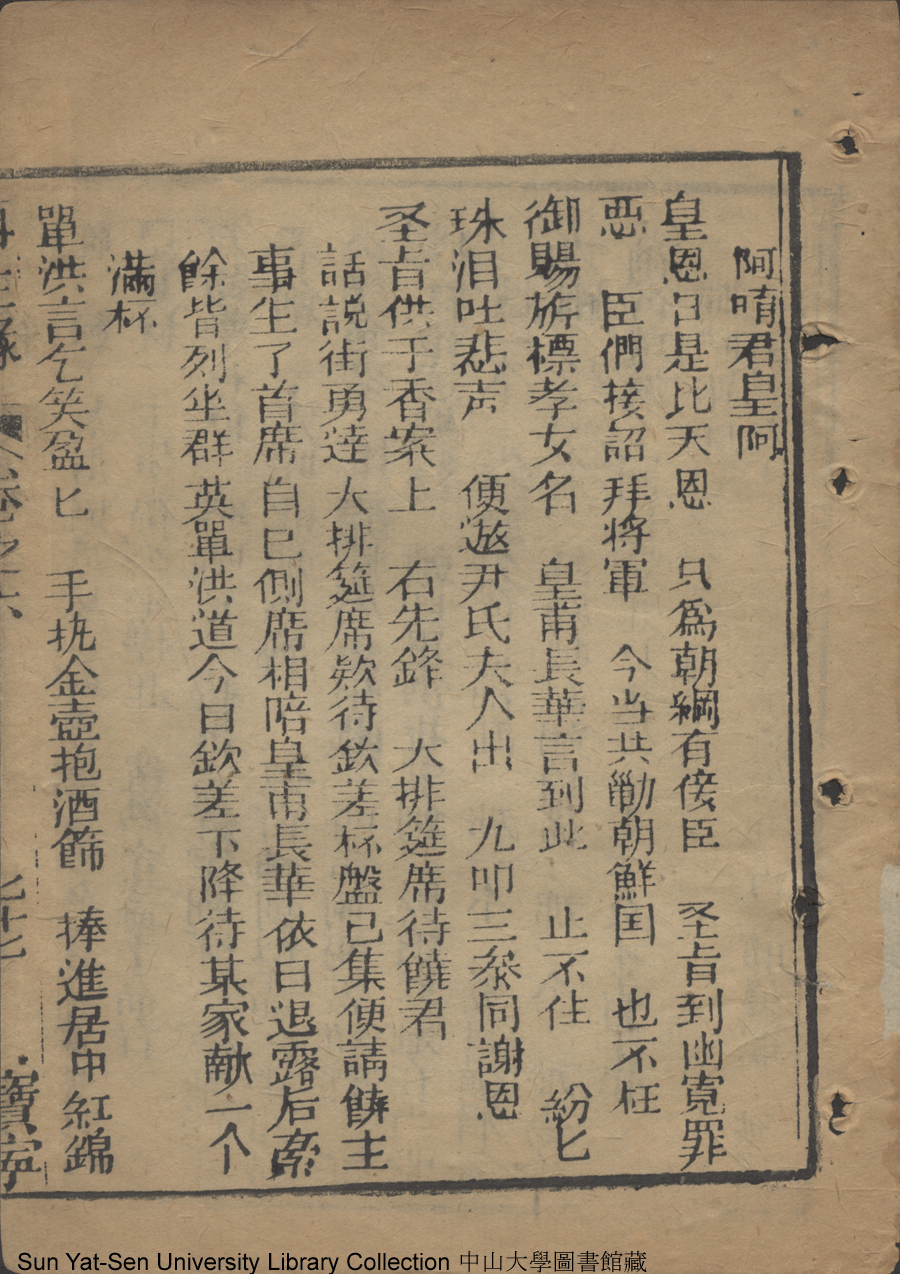 阿唷君皇阿
皇恩日是比天恩 只為朝綱有佞臣 圣旨到幽寬罪
惡 臣們接詔拜將軍 今当共勦朝鮮囯 也不枉
御賜旂標孝女名 皇甫長華言到此 止不住 紛匕
珠泪吐悲声 便邀尹氏夫人出 九叩三叅同謝恩
圣旨供于香案上 右先鋒 大排筵席待饒君
話說街勇達大排筵席欵待欽差杯盤已集便請
事生了首席自已側席相陪皇甫長華依旧退露后
餘皆列坐群英單洪道今日欽差下降待某家献一个
滿杯
單洪言乞笑盈匕 手执金壺抱酒篩 捧進居中紅錦
再生緣 卷之六
Sun Yat-Sen University Library Collection 中山大學圖書館藏